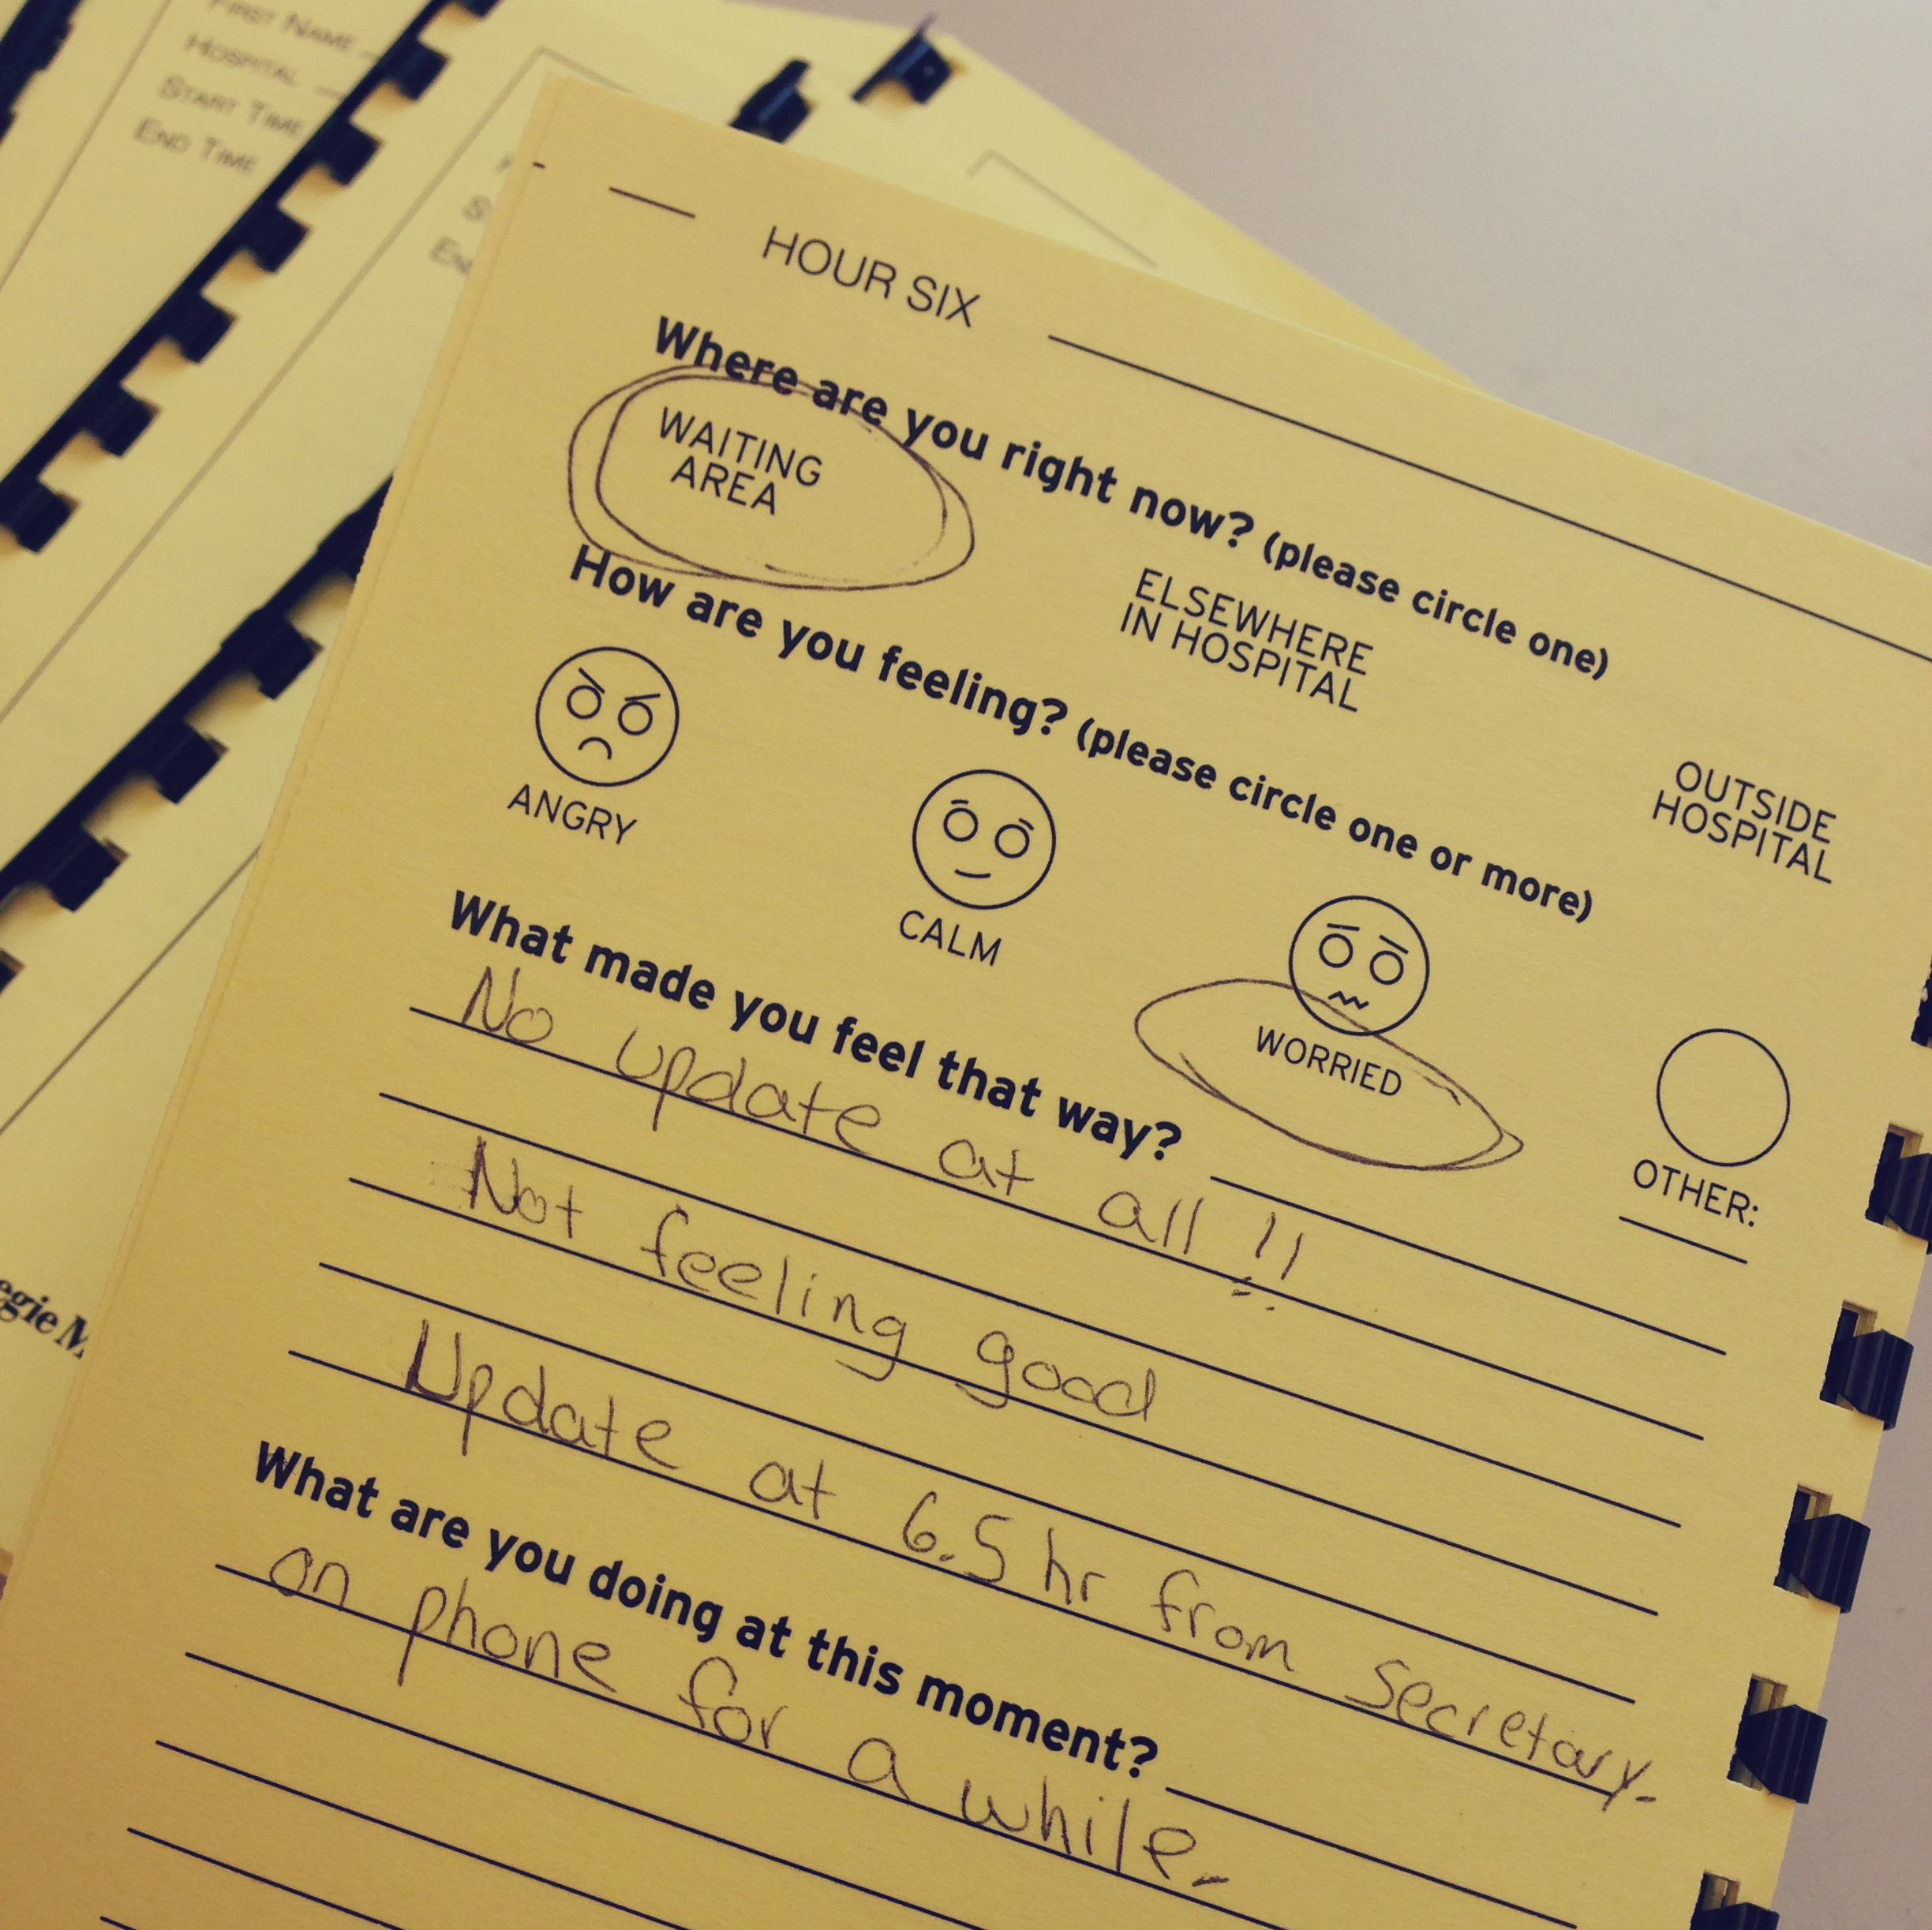 FIRST NAME
HOSPITAL
START TIME
END TIME
HOUR SIX
Where are you right now? (please circle one)
WAITING
AREA
ELSEWHERE
IN HOSPITAL
OUTSIDE
HOSPITAL
How are you feeling? (please circle one or more)
ANGRY
CALM
WORRIED
OTHER:
What made you feel that way?
No update at all !!
Not feeling good
Update at 6.5 hr from secretary.
What are you doing at this moment?
on phone for a while.